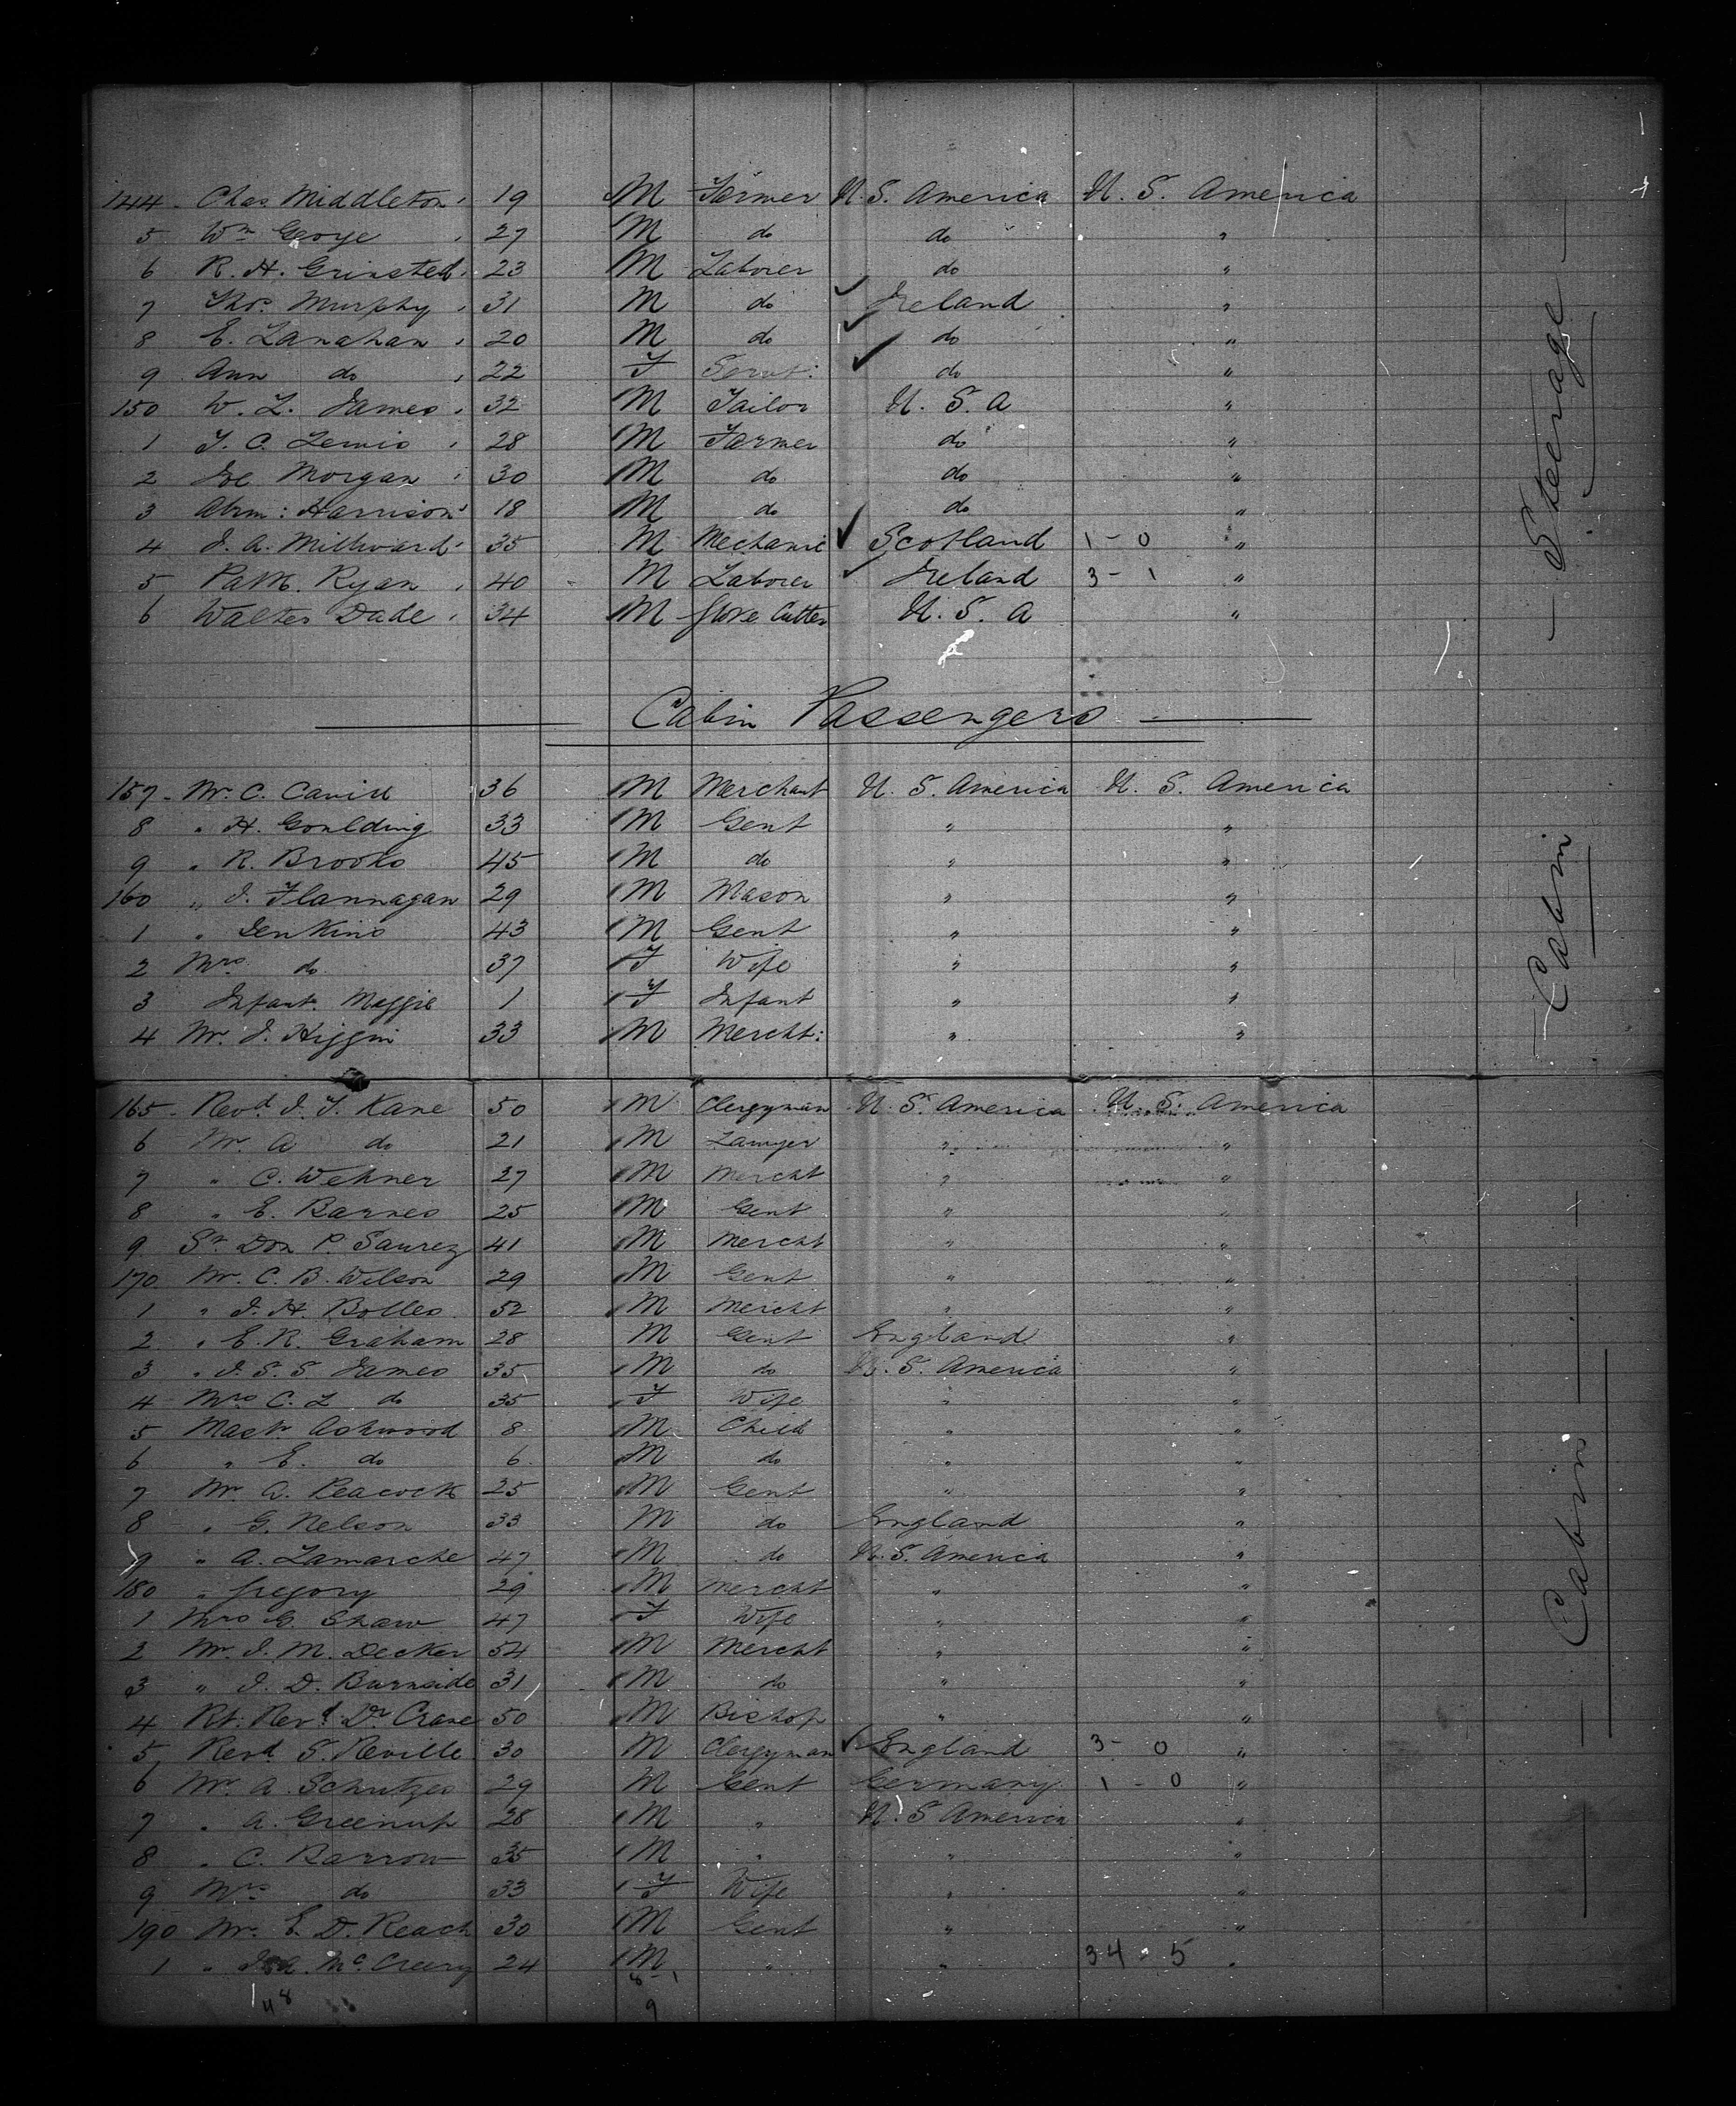 144 - Chas Middleton 19 M Farmer U. S. America U. S. America
5 Wm Geoye 27 M do do "
6 R. H. Grinsted 23 M Laborer do "
7 Thos. Murphy 31 M do ✓ Ireland "
8 E. Lanahan 20 M do ✓ do "
9 Ann do 22 F Servt: ✓ do "
150 W. L. James 32 M Tailor U. S. A "
1 T. C. Lewis 28 M Farmer do "
2 Morgan 30 M do do "
3 Abm: Harrison 18 M do do "
4 J. A. Millward 35 M Mechanic ✓ Scotland 1 - 0 "
5 Patk. Ryan 40 M Laborer ✓ Ireland 3 - 1 "
6 Walter Dade 34 M Glove Cutter U. S. A "
Steerage
Cabin Passengers
157 - Mr. C. Cavill 36 M Merchant U. S. America U. S. America
8 " H. Goulding 33 M Gent " "
9 " R. Brooks 45 M do " "
160 " J. Flannagan 29 M Mason " "
1 " Jenkins 43 M Gent " "
2 Mrs do 37 F Wife " "
3 Infant Maggie 1 F Infant " "
4 Mr. J. Higgin 33 M Mercht: " "
Cabin
165 - Revd J. T. Kane 50 M Clergyman U. S. America U. S. America
6 Mr. A do 21 M Lawyer " "
7 " C. Wehner 27 M Mercht " "
8 " E. Barnes 25 M Gent " "
9 Sr Don P. Saurez 41 M Mercht " "
170 Mr. C. B. Wilson 29 M Gent " "
1 " J. H. Bolles 52 M Mercht " "
2 " E. R. Graham 28 M Gent England "
3 " J. S. S James 35 M do U. S. America "
4 Mrs C. L do 35 F Wife " "
5 Mastr Ashwood 8 M Child " "
6 " E. do 6 M do " "
7 Mr A. Peacock 25 M Gent " "
8 " G. Nelson 33 M do England "
9 " A. Lamarche 47 M do U. S. America "
180 " Gregory 29 M Mercht " "
1 Mrs G. Shaw 47 F Wife " "
2 Mr. J. M. Decker 54 M Mercht " "
3 " J. D. Burnside 31 M do " "
4 Rt. Revd Dr Crane 50 M Bishop " "
5 Revd S. Neville 30 M Clergyman ✓ England 3 - 0 "
6 Mr A. Schutzes 29 M Gent Germany 1 - 0 "
7 " A. Greenup 28 M " U. S America "
8 " C. Barrow 35 M " " "
9 Mrs do 33 F Wife " "
190 Mr. E. D. Reach 30 M Gent " "
1 " McCreery 24 M " " 34 - 5 "
Cabin
8 - 1
9
148